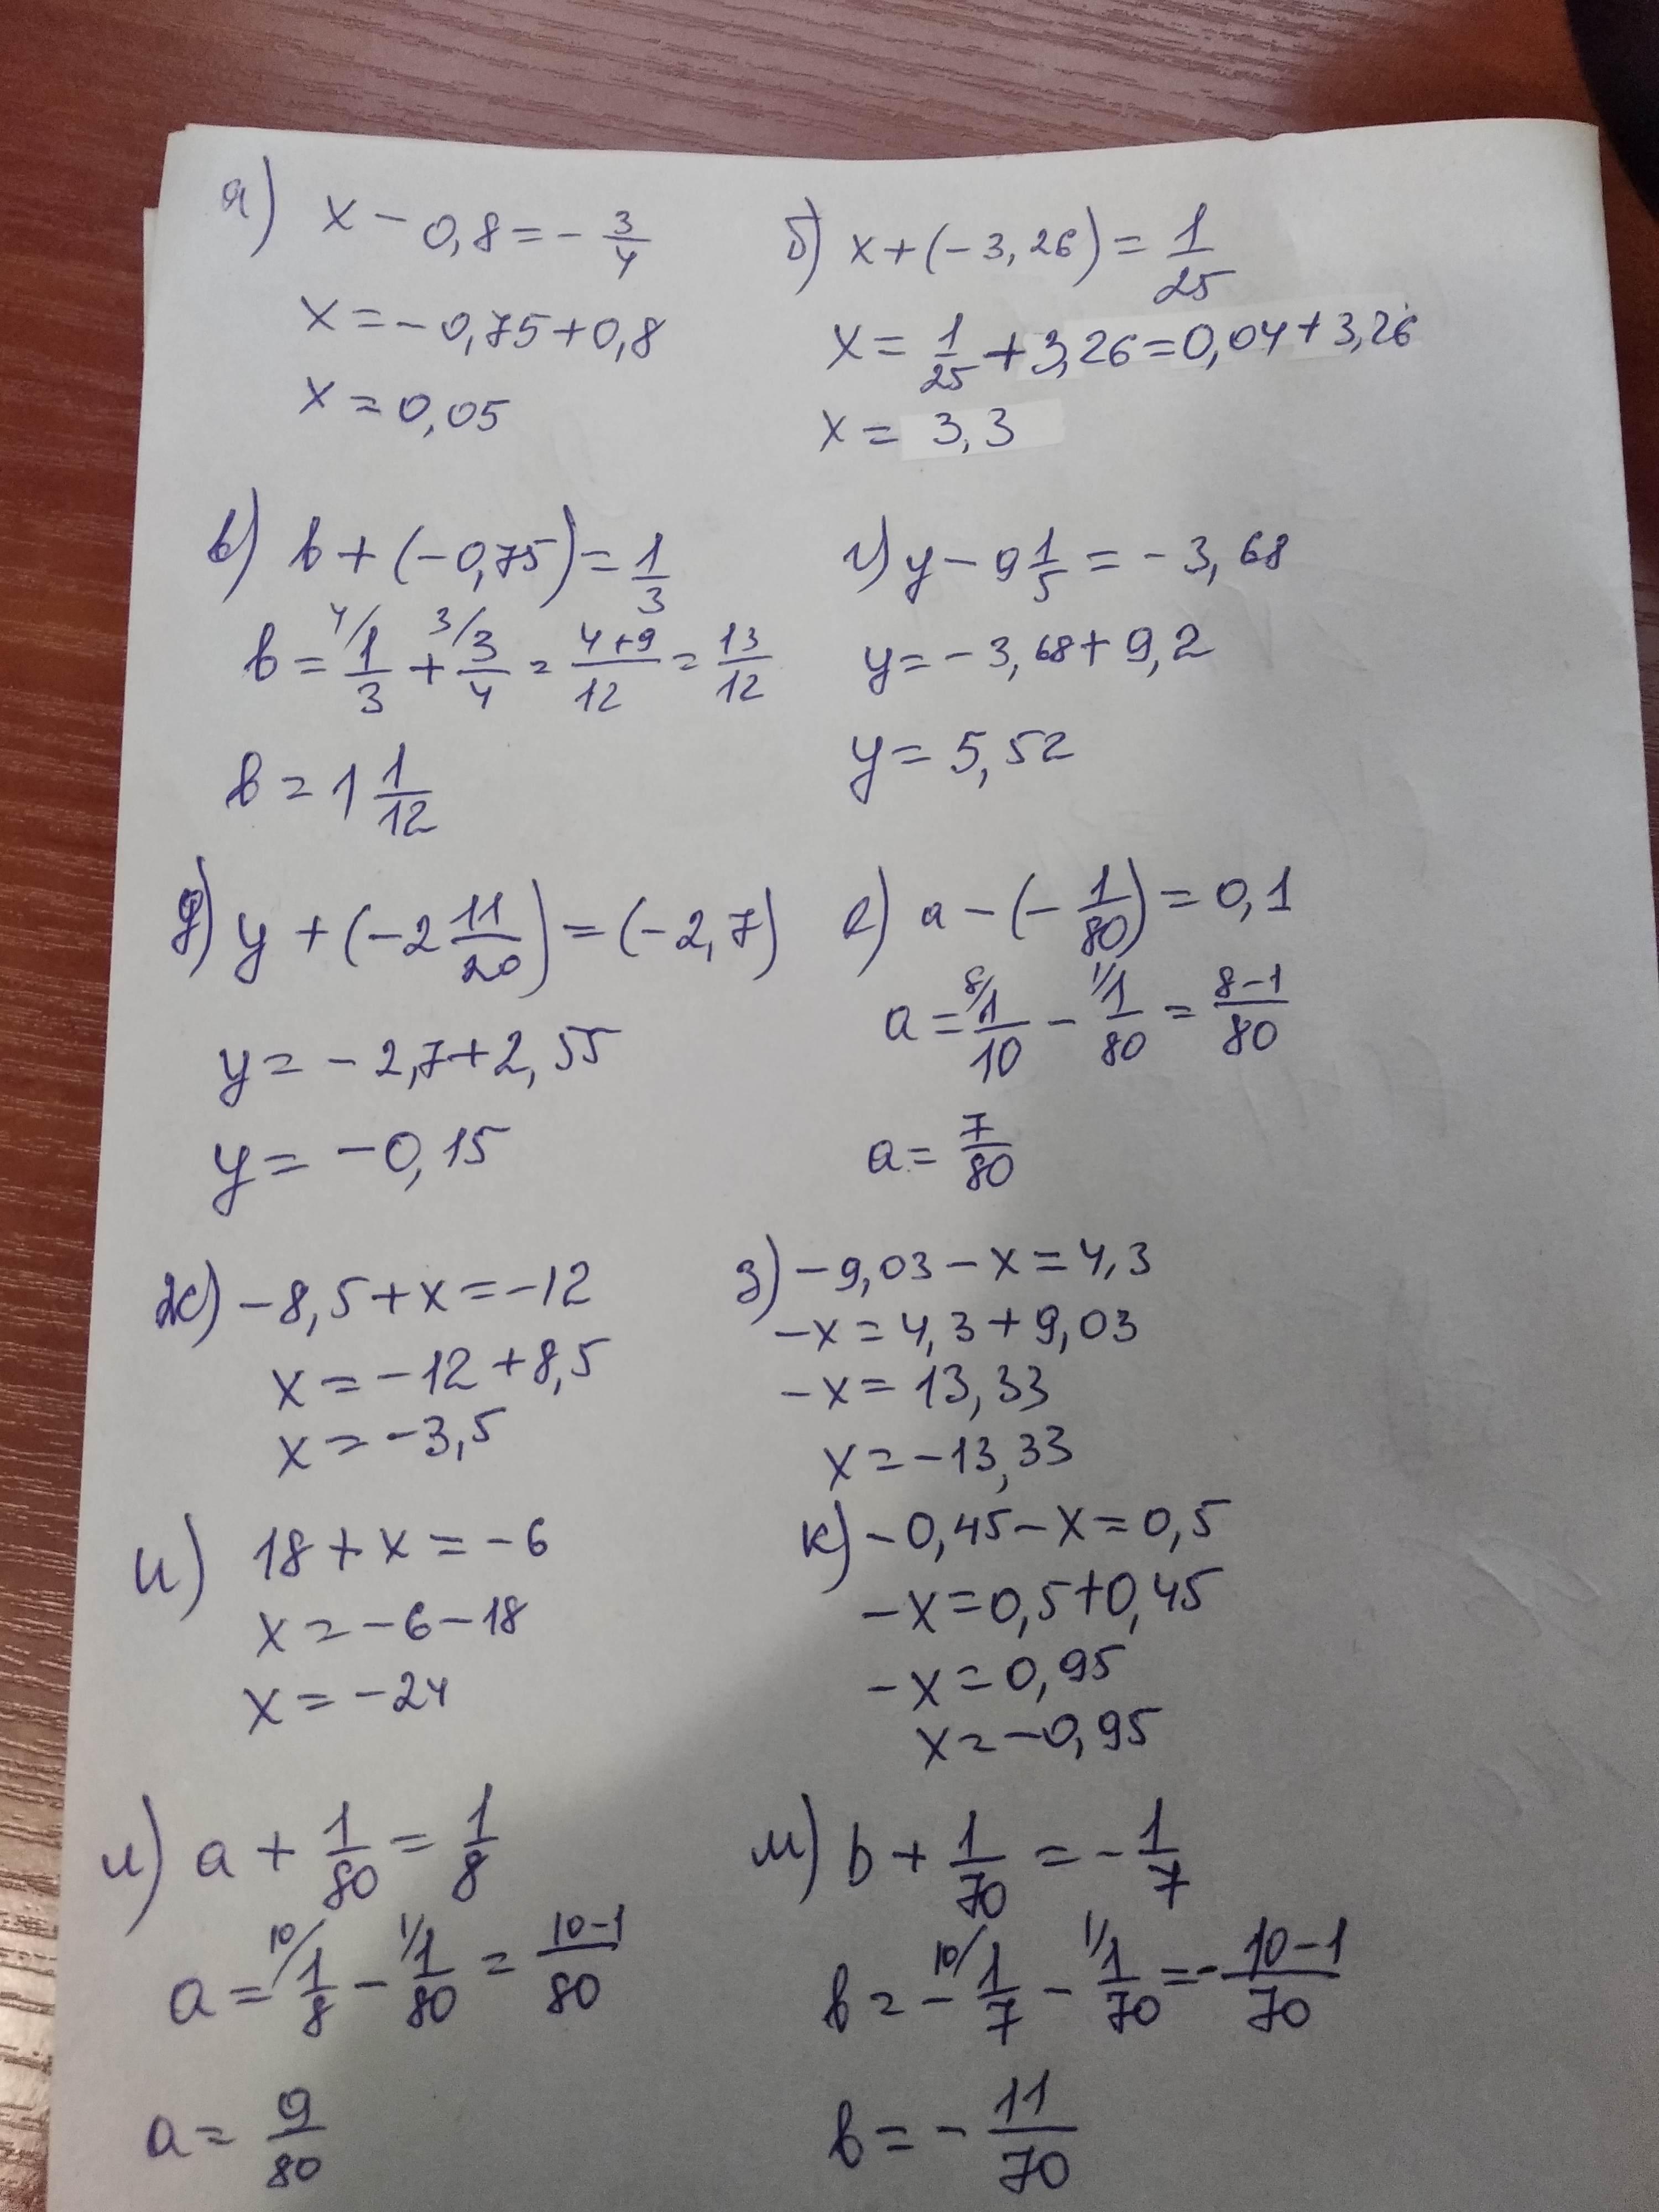 а) x - 0,8 = - 3/4
x = - 0,75 + 0,8
x = 0,05
б) x + (- 3,26) = 1/25
x = 1/25 + 3,26 = 0,04 + 3,26
x = 3,3
в) b + (- 0,75) = 1/3
b = 4/ 1/3 + 3/ 3/4 = (4+9)/12 = 13/12
b = 1 1/12
г) y - 9 1/5 = - 3,68
y = - 3,68 + 9,2
y = 5,52
д) y + (- 2 11/20) = (- 2,7)
y = - 2,7 + 2,55
y = - 0,15
е) a - (- 1/80) = 0,1
a = 8/ 1/10 - 1/ 1/80 = (8-1)/80
a = 7/80
ж) - 8,5 + x = - 12
x = - 12 + 8,5
x = - 3,5
з) - 9,03 - x = 4,3
- x = 4,3 + 9,03
- x = 13,33
x = - 13,33
и) 18 + x = - 6
x = - 6 - 18
x = - 24
к) - 0,45 - x = 0,5
- x = 0,5 + 0,45
- x = 0,95
x = - 0,95
л) a + 1/80 = 1/8
a = 10/ 1/8 - 1/ 1/80 = (10-1)/80
a = 9/80
м) b + 1/70 = - 1/7
b = - 10/ 1/7 - 1/ 1/70 = - (10-1)/70
b = - 11/70